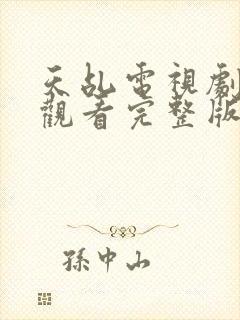 天乩電視劇
觀看完整版
孫中山